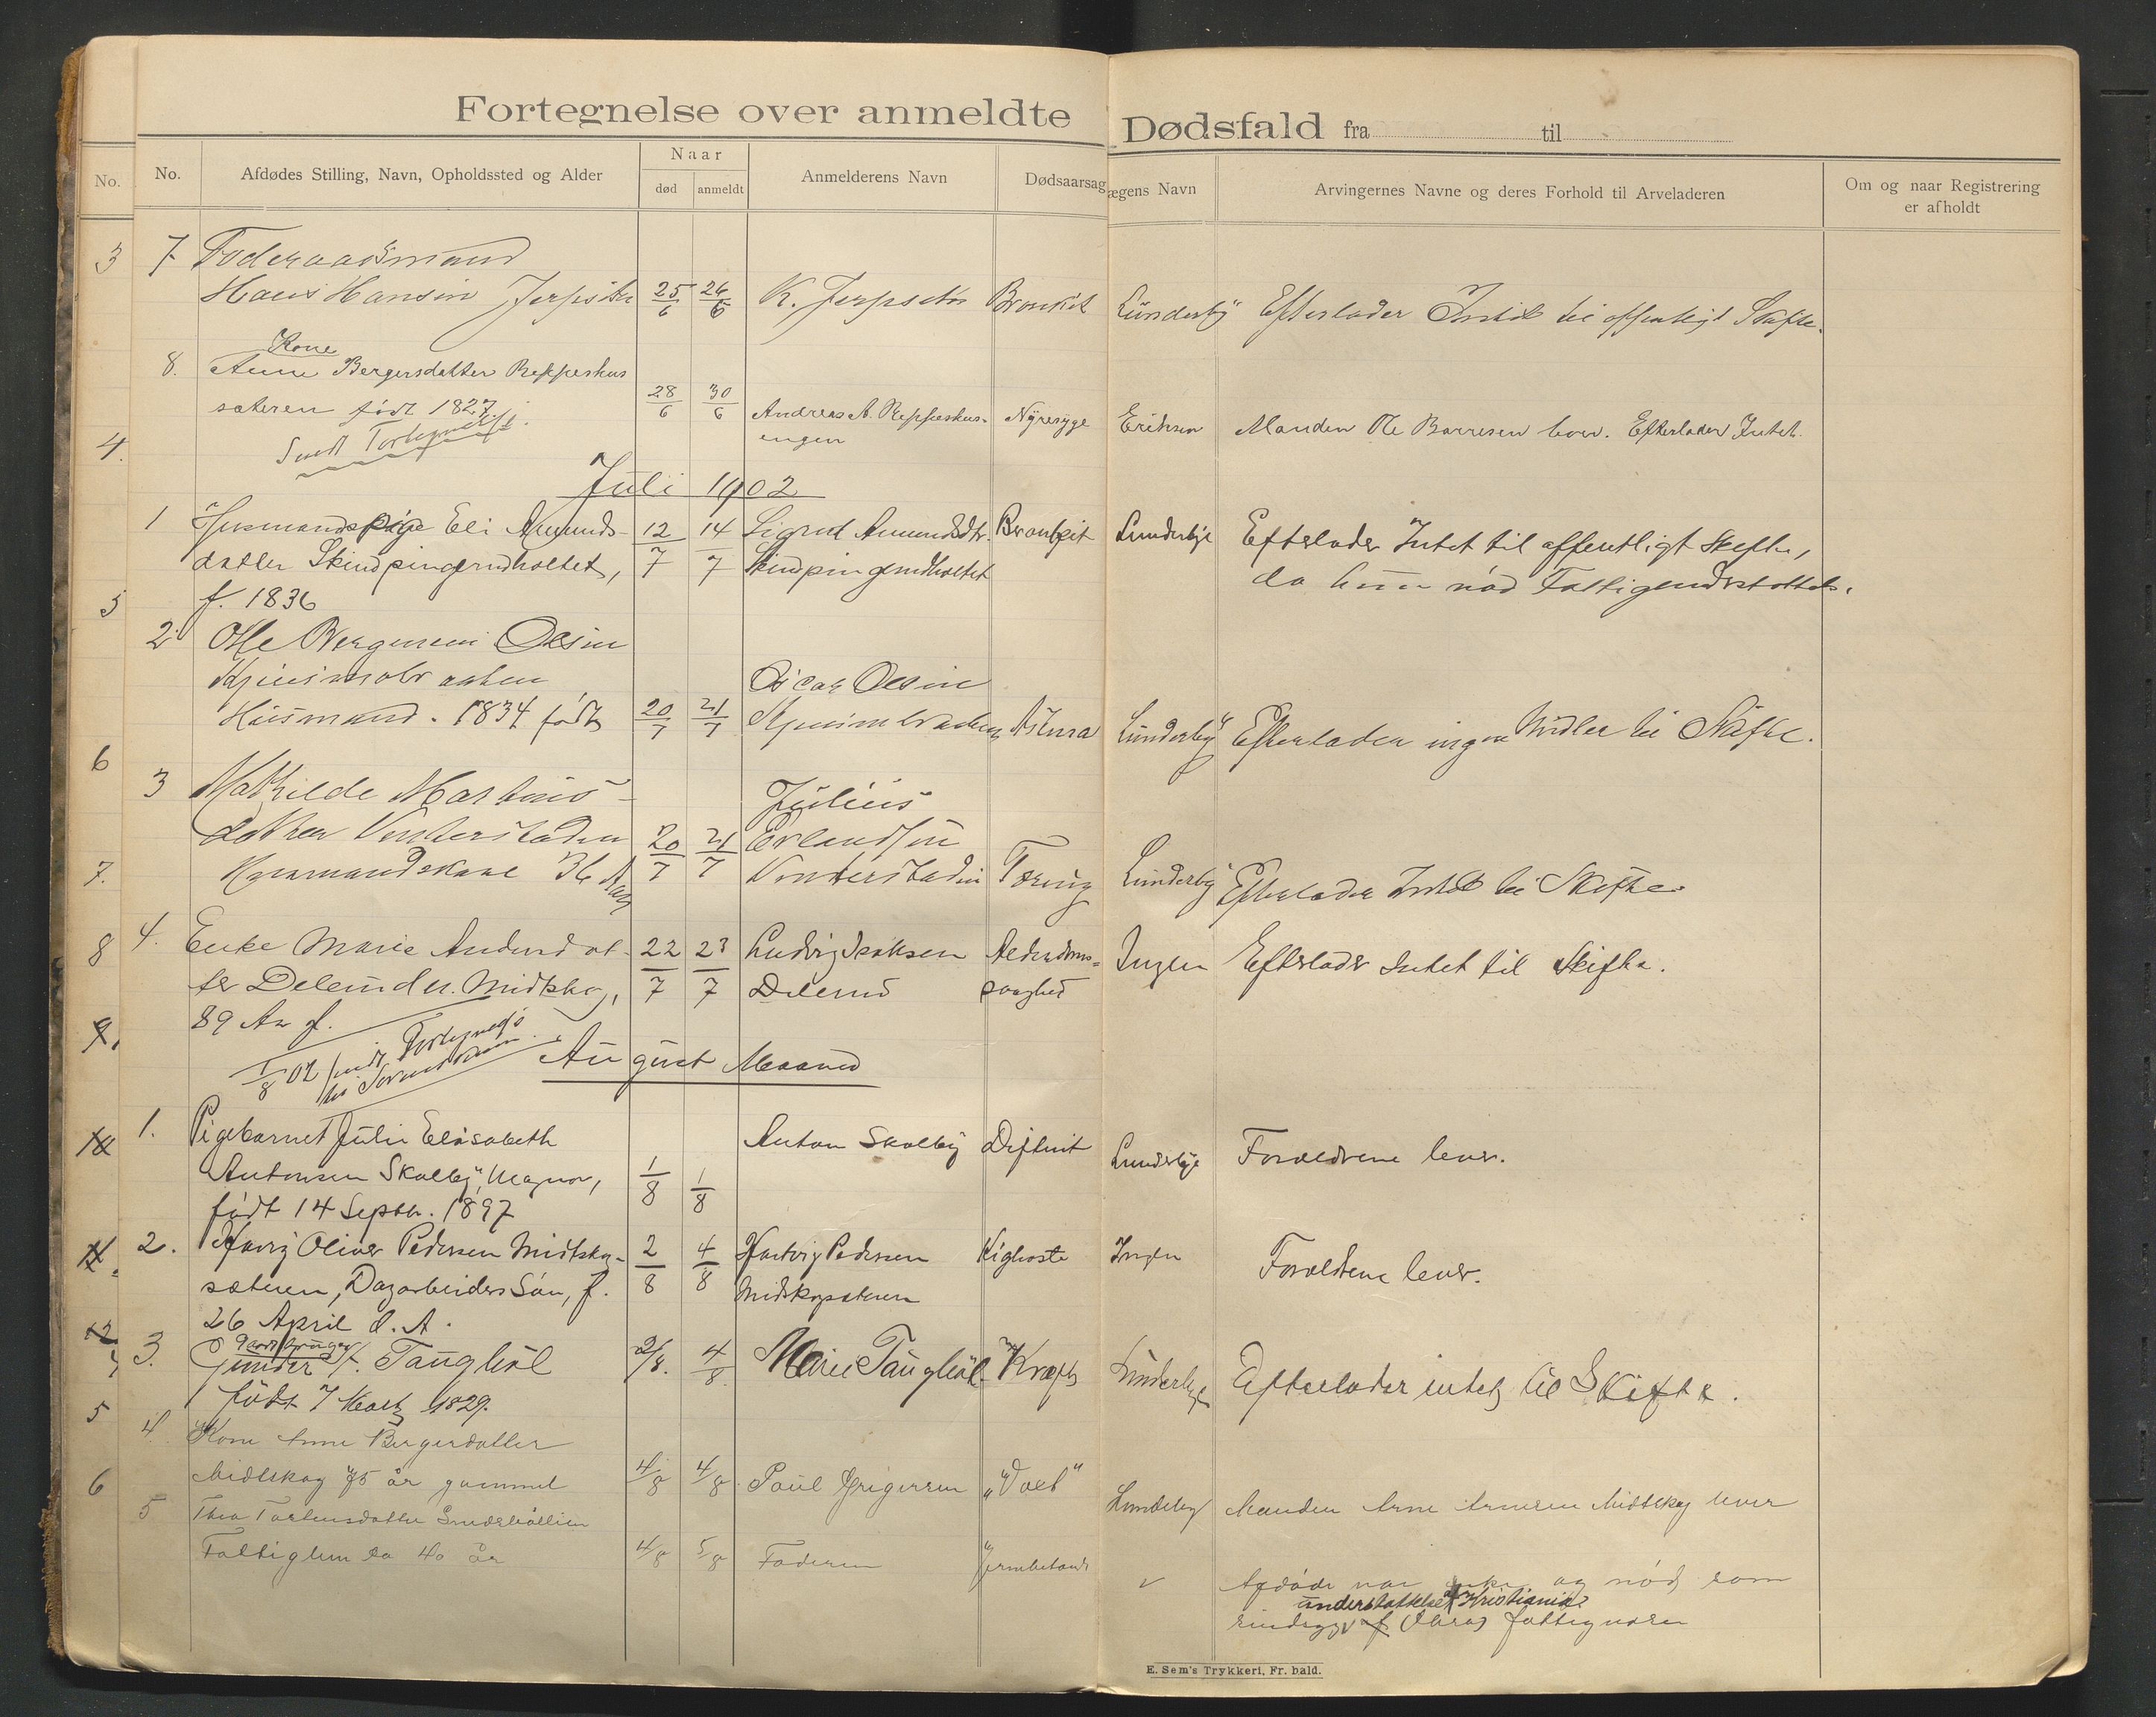 Fortegnelse over anmeldte Dødsfald fra til
No. No. Afdødes Stilling, Navn, Opholdssted og Alder Naar død anmeldt Anmelderens Navn Dødsaarsag Lægens Navn Arvingernes Navne og deres Forhold til Arveladeren Om og naar Registrering er afholdt
3 7 Føderaadsmand
Hans Hansen 25/6 26/6 K. Bronkit Lunderby Efterlader Intet til offentligt Skifte.
Kone
8. Anne Bergersdatter Reppeshus
sæteren født 1827. 28/6 30/6 Andreas A. Reppeshus- Nyresyge Eriksen Manden Ole Børresen lever. Efterlader Intet.
engen
4.
Juli 1902
1 Husmandspige Eli Amunds- 12/7 14/7 Sigrid Amundsdtr. Bronkit Lunderbye Efterlader Intet til offentligt Skifte,
datter Skindpingrudholtet, Skindpingrudholtet da hun nød Fattigunderstøttels.
5 f. 1836
2 Olle Bergersen Olsen
Oscar Olsen
Husmand. 1834 født 20/7 21/7 Astma Lunderby Efterlader ingen Midler til Skifte.
6
3 Mathilde Martins- Julius
datter Vinterstaden 20/7 21/7 Erlandsen
7. 36 Aar Vinterstaden Tæring Lunderby Efterlader Intet til Skifte
8 4. Enke Marie Andersdat- 22/7 23/7 Ludvig Isaksen Alderdoms- Ingen Efterlader Intet til Skifte.
ter Delerud u. Midtskog, Delerud svaghed
89 Aar gl.
1/8 02 sendt Fortegnelse
til Sorenskriveren
9.
August Maaned
10 1. Pigebarnet Julie Elisabeth Anton Skolby Difterit Lunderbye Forældrene lever.
Antonsen Skolby, Magnor, 1/8 1/8
født 14 Septbr. 1897
11. 2. Harry Oliver Pedersen Midtskog- 2/8 4/8 Hartvig Pedersen Kighoste Ingen Forældrene lever.
sæteren, Dagarbeiders Søn, f. Midskogsæteren
26 April d. A.
12 3. Gunder H. Taugbøl 2/8. 4/8 Maren Taugbøl Kræft Lunderbye Efterlader intet til Skifte.
født 7 Marts 1829.
5 4 Kone Anne Bergerdatter
6 Midtskog 75 år gammel 4/8 4/8 Poul Grigersen Lundeby Manden Arne Arnesen Midtskog lever
5 Thea Torkensdatter
Fattiglem ca 40 år 4/8 5/8 Faderen Afdøde var enke og nød som
understøttelse af Kristiania
fattigvæsen
E. Sem's Trykkeri, Fr. hald.